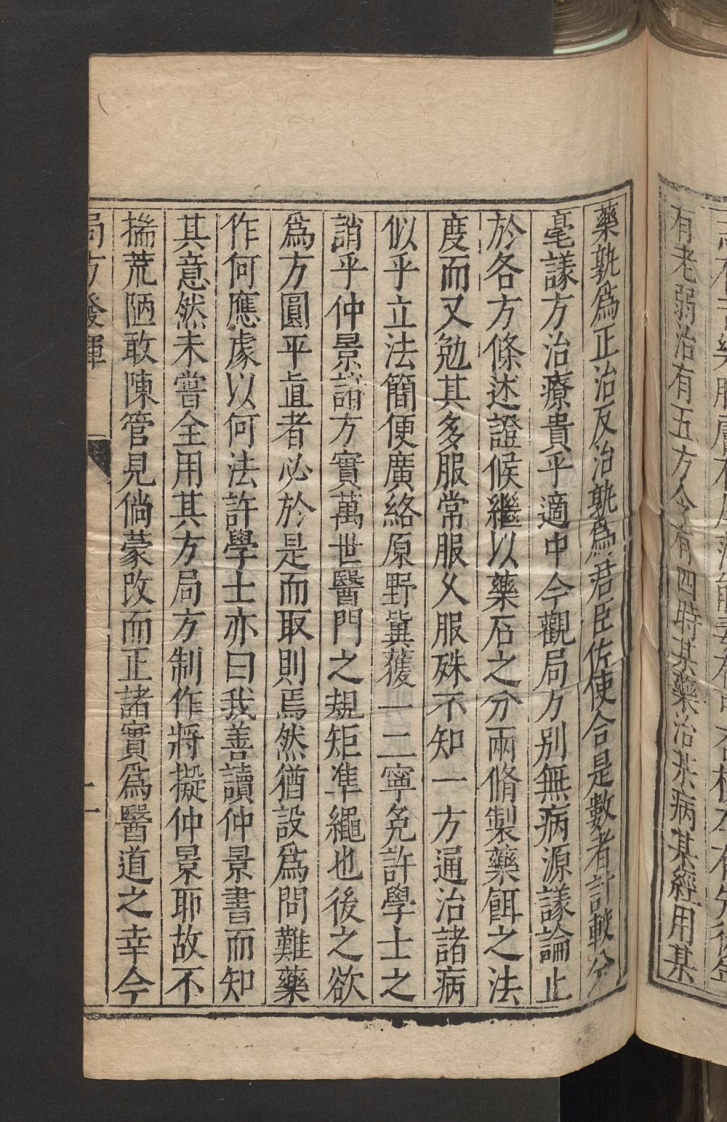 有老弱治有五方令有四時某藥治某病某經用某
藥孰爲正治反治孰爲君臣佐使合是數者計較分
毫議方治療貴乎適中今觀局方別無病源議論止
於各方條述證候繼以藥石之分兩脩製藥餌之法
度而又勉其多服常服乆服殊不知一方通治諸病
似乎立法簡便廣絡原野冀獲一二寧免許學士之
誚乎仲景諸方實萬世醫門之規矩凖繩也後之欲
爲方圓平直者必於是而取則焉然猶設爲問難藥
作何應處以何法許學士亦曰我善讀仲景書而知
其意然未嘗全用其方局方制作將擬仲景耶故不
揣荒陋敢陳管見倘蒙改而正諸實爲醫道之幸今
局方發揮
二